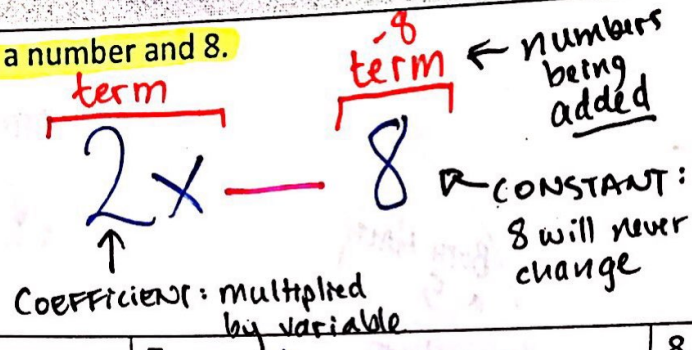 a number and 8.
term
-8
term ← numbers
being
added
2x — 8
CONSTANT:
8 will never
change
COEFFICIENT: multiplied
by variable
8